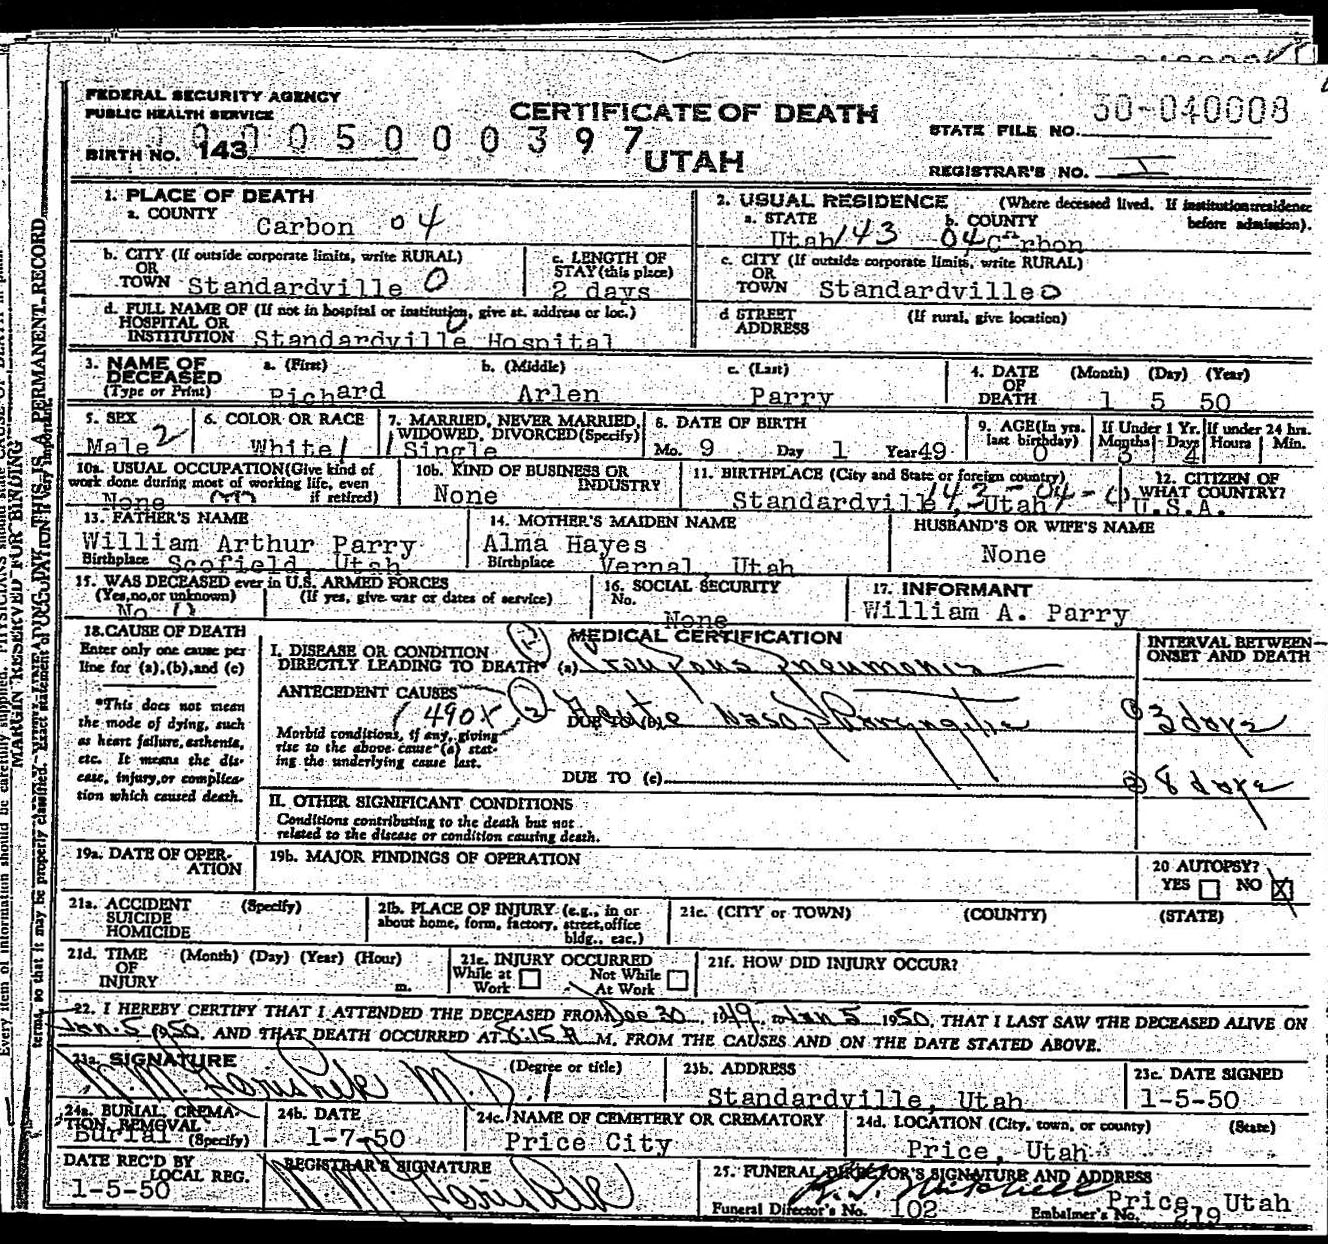 FEDERAL SECURITY AGENCY
PUBLIC HEALTH SERVICE
CERTIFICATE OF DEATH
UTAH
STATE FILE NO. 50-040008
BIRTH NO. 143
0005000397
REGISTRAR'S NO. 1
1. PLACE OF DEATH
a. COUNTY Carbon 04
2. USUAL RESIDENCE (Where deceased lived. If institution: residence before admission).
a. STATE Utah 143 b. COUNTY 04 Carbon
b. CITY (If outside corporate limits, write RURAL) OR TOWN Standardville 0
c. LENGTH OF STAY (this place) 2 days
c. CITY (If outside corporate limits, write RURAL) OR TOWN Standardville 0
d. FULL NAME OF (If not in hospital or institution, give st. address or loc.) HOSPITAL OR INSTITUTION Standardville Hospital
d STREET ADDRESS (If rural, give location)
3. NAME OF DECEASED (Type or Print) a. (First) Richard b. (Middle) Arlen c. (Last) Parry
4. DATE OF DEATH (Month) (Day) (Year) 1 5 50
5. SEX Male 2
6. COLOR OR RACE White 1
7. MARRIED, NEVER MARRIED, WIDOWED, DIVORCED (Specify) 1 Single
8. DATE OF BIRTH Mo. 9 Day 1 Year 49
9. AGE (In yrs. last birthday) 0 If Under 1 Yr. Months 3 Days 4 If under 24 hrs. Hours Min.
10a. USUAL OCCUPATION (Give kind of work done during most of working life, even if retired) None
10b. KIND OF BUSINESS OR INDUSTRY None
11. BIRTHPLACE (City and State or foreign country) Standardville, Utah 143-04-0
12. CITIZEN OF WHAT COUNTRY? U.S.A.
13. FATHER'S NAME William Arthur Parry
Birthplace Scofield, Utah
14. MOTHER'S MAIDEN NAME Alma Hayes
Birthplace Vernal, Utah
HUSBAND'S OR WIFE'S NAME None
15. WAS DECEASED ever in U.S. ARMED FORCES (Yes, no, or unknown) (If yes, give war or dates of service) No 0
16. SOCIAL SECURITY No. None
17. INFORMANT William A. Parry
18. CAUSE OF DEATH
Enter only one cause per line for (a), (b), and (c)
*This does not mean the mode of dying, such as heart failure, asthenia, etc. It means the disease, injury, or complication which caused death.
MEDICAL CERTIFICATION
INTERVAL BETWEEN ONSET AND DEATH
I. DISEASE OR CONDITION DIRECTLY LEADING TO DEATH* (a) Croupous Pneumonia
ANTECEDENT CAUSES
490X
Morbid conditions, if any, giving rise to the above cause (a) stating the underlying cause last.
DUE TO (b) Acute Naso Pharyngitis
① 3 days
DUE TO (c)
② 8 days
II. OTHER SIGNIFICANT CONDITIONS
Conditions contributing to the death but not related to the disease or condition causing death.
19a. DATE OF OPERATION
19b. MAJOR FINDINGS OF OPERATION
20 AUTOPSY? YES NO X
21a. ACCIDENT SUICIDE HOMICIDE (Specify)
21b. PLACE OF INJURY (e.g., in or about home, farm, factory, street, office bldg., etc.)
21c. (CITY or TOWN) (COUNTY) (STATE)
21d. TIME OF INJURY (Month) (Day) (Year) (Hour) m.
21e. INJURY OCCURRED While at Work Not While At Work
21f. HOW DID INJURY OCCUR?
22. I HEREBY CERTIFY THAT I ATTENDED THE DECEASED FROM Dec 30, 1949, to Jan 5 1950, THAT I LAST SAW THE DECEASED ALIVE ON
Jan. 5 1950, AND THAT DEATH OCCURRED AT 8:15 A M. FROM THE CAUSES AND ON THE DATE STATED ABOVE.
23a. SIGNATURE M.D. (Degree or title)
23b. ADDRESS Standardville, Utah
23c. DATE SIGNED 1-5-50
24a. BURIAL, CREMATION, REMOVAL (Specify) Burial
24b. DATE 1-7-50
24c. NAME OF CEMETERY OR CREMATORY Price City
24d. LOCATION (City, town, or county) (State) Price, Utah
DATE REC'D BY LOCAL REG. 1-5-50
REGISTRAR'S SIGNATURE
25. FUNERAL DIRECTOR'S SIGNATURE AND ADDRESS Mitchell Price, Utah
Funeral Director's No. 102 Embalmer's No. 219
MARGIN RESERVED FOR BINDING
THIS IS A PERMANENT RECORD
Every item of information should be carefully supplied.
terms, so that it may be properly classified. Exact statement of OCCUPATION is very important.